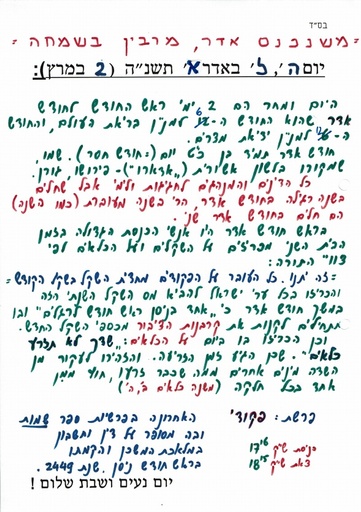 בס"ד
= משנכנס אדר, מרבין בשמחה =
יום ה', ל' באדר א' תשנ"ה (2 במרץ):
היום ומחר הם 2 ימי ראש החודש לחודש
אדר שהוא החודש ה- 6 למנין בריאת העולם, והחודש
ה- למנין יציאת מצרים.
חודש אדר תמיד בן כ"ט יום (=חודש חסר). שמו,
שמקורו בלשון אשורית („אדארו")- פירושו, גורן.
כל הדינים והמנהגים לחגיגות ולימי אבל שחלים
בשנה רגילה בחודש אדר, הרי בשנה מעוברת (כמו השנה)
הם חלים בחודש אדר שני.
בראש חודש אדר היו אנשי הכנסת הגדולה בזמן
הבית השני מכריזים על השקלים ועל הכלאים לפי
צווי התורה:
=זה יתנו. כל העובר על הפקודים מחצית השקל בשקל הקודש=
והכריזו בכל ערי ישראל להביא מס השקל השנתי הזה
במשך חודש אדר כי „אחד בניסן ראש חודש" ובו
מתחילים לקנות את קרבנות הציבור מכספי השקל החדש.
וכן הכריזו בו ביום על הכלאים: „שדך לא תזרע
כלאים". שכן הגיע זמן הזריעה. והזהירו לעקור מן
השדה מינים אחרים ממה שכבר זרעו, חוץ ממין
אחד בכל חלקה (משנה כלאים ב', ה')
פרשת: פקודי האחרונה בפרשיות ספר שמות
ובה מסופר על דין וחשבון
במלאכת המשכן והקמתו
בראש חודש ניסן. שנת 2449.
כניסת ש"ק 17
צאת ש"ק 18
יום נעים ושבת שלום !